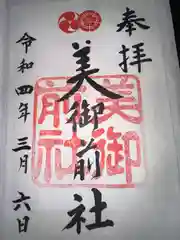 奉拝
美御前社
美御
前社
令和四年三月六日